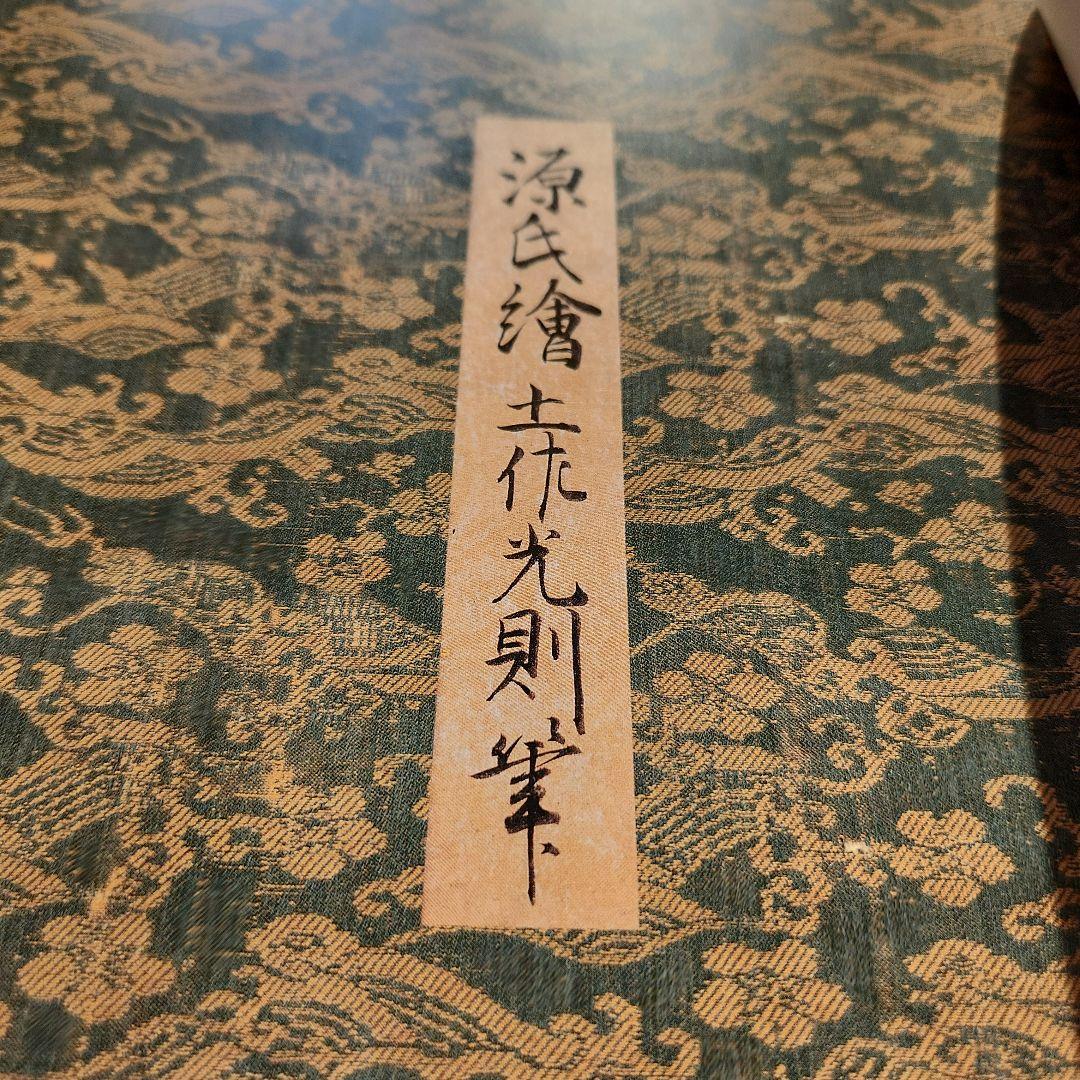 源氏繪土佐光則筆